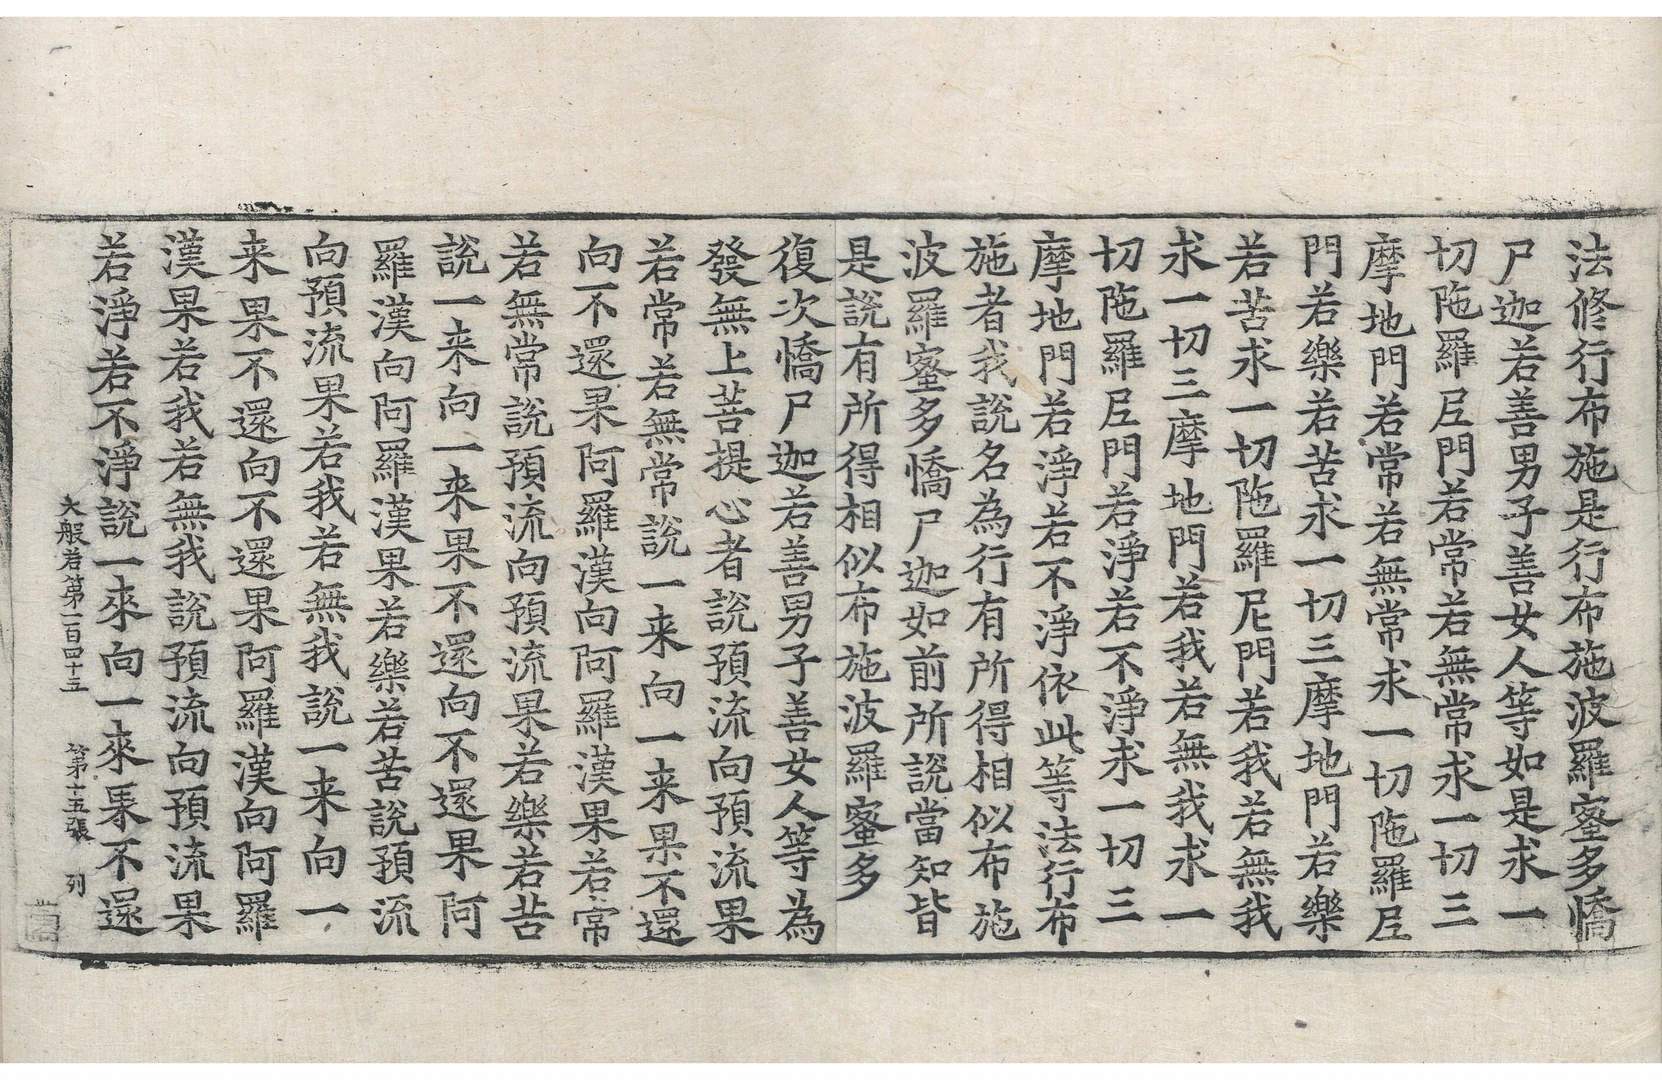 法修行布施是行布施波羅蜜多憍
尸迦若善男子善女人等如是求一
切陁羅尼門若常若無常求一切三
摩地門若常若無常求一切陁羅尼
門若樂若苦求一切三摩地門若樂
若苦求一切陁羅尼門若我若無我
求一切三摩地門若我若無我求一
切陁羅尼門若淨若不淨求一切三
摩地門若淨若不淨依此等法行布
施者我說名為行有所得相似布施
波羅蜜多憍尸迦如前所說當知皆
是說有所得相似布施波羅蜜多
復次憍尸迦若善男子善女人等為
發無上菩提心者說預流向預流果
若常若無常說一来向一来果不還
向不還果阿羅漢向阿羅漢果若常
若無常說預流向預流果若樂若苦
說一来向一来果不還向不還果阿
羅漢向阿羅漢果若樂若苦說預流
向預流果若我若無我說一来向一
来果不還向不還果阿羅漢向阿羅
漢果若我若無我說預流向預流果
若淨若不淨說一來向一來果不還
大般若第一百四十五 第十五張 列